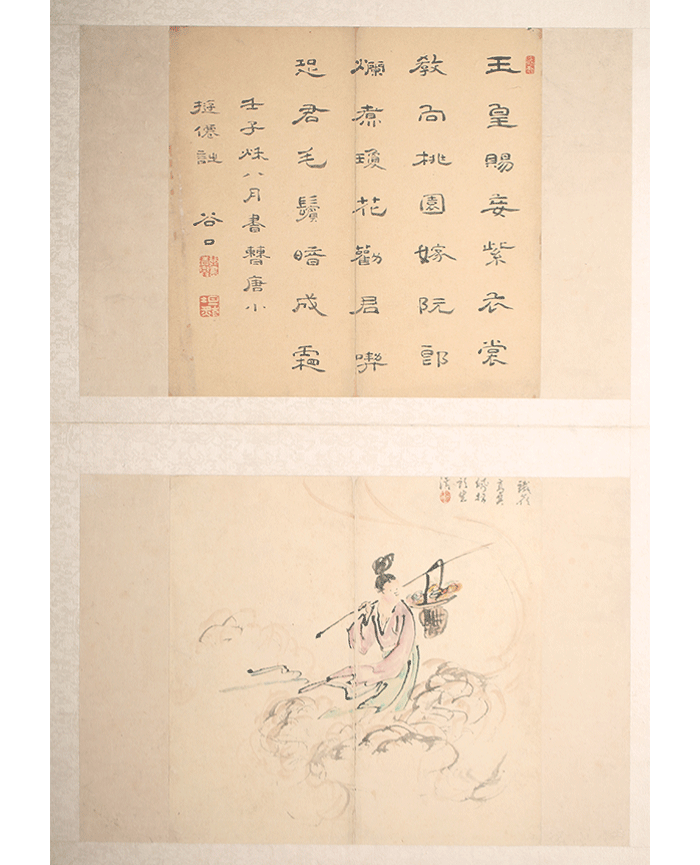 王皇賜妾紫衣裳
教向桃園嫁阮郎
爛煮瓊花勸君喫
恐君毛鬢暗成霜
壬子秋八月書曹唐小
遊僊詩 谷口
鐵嶺
高其
佩指
頭生
活